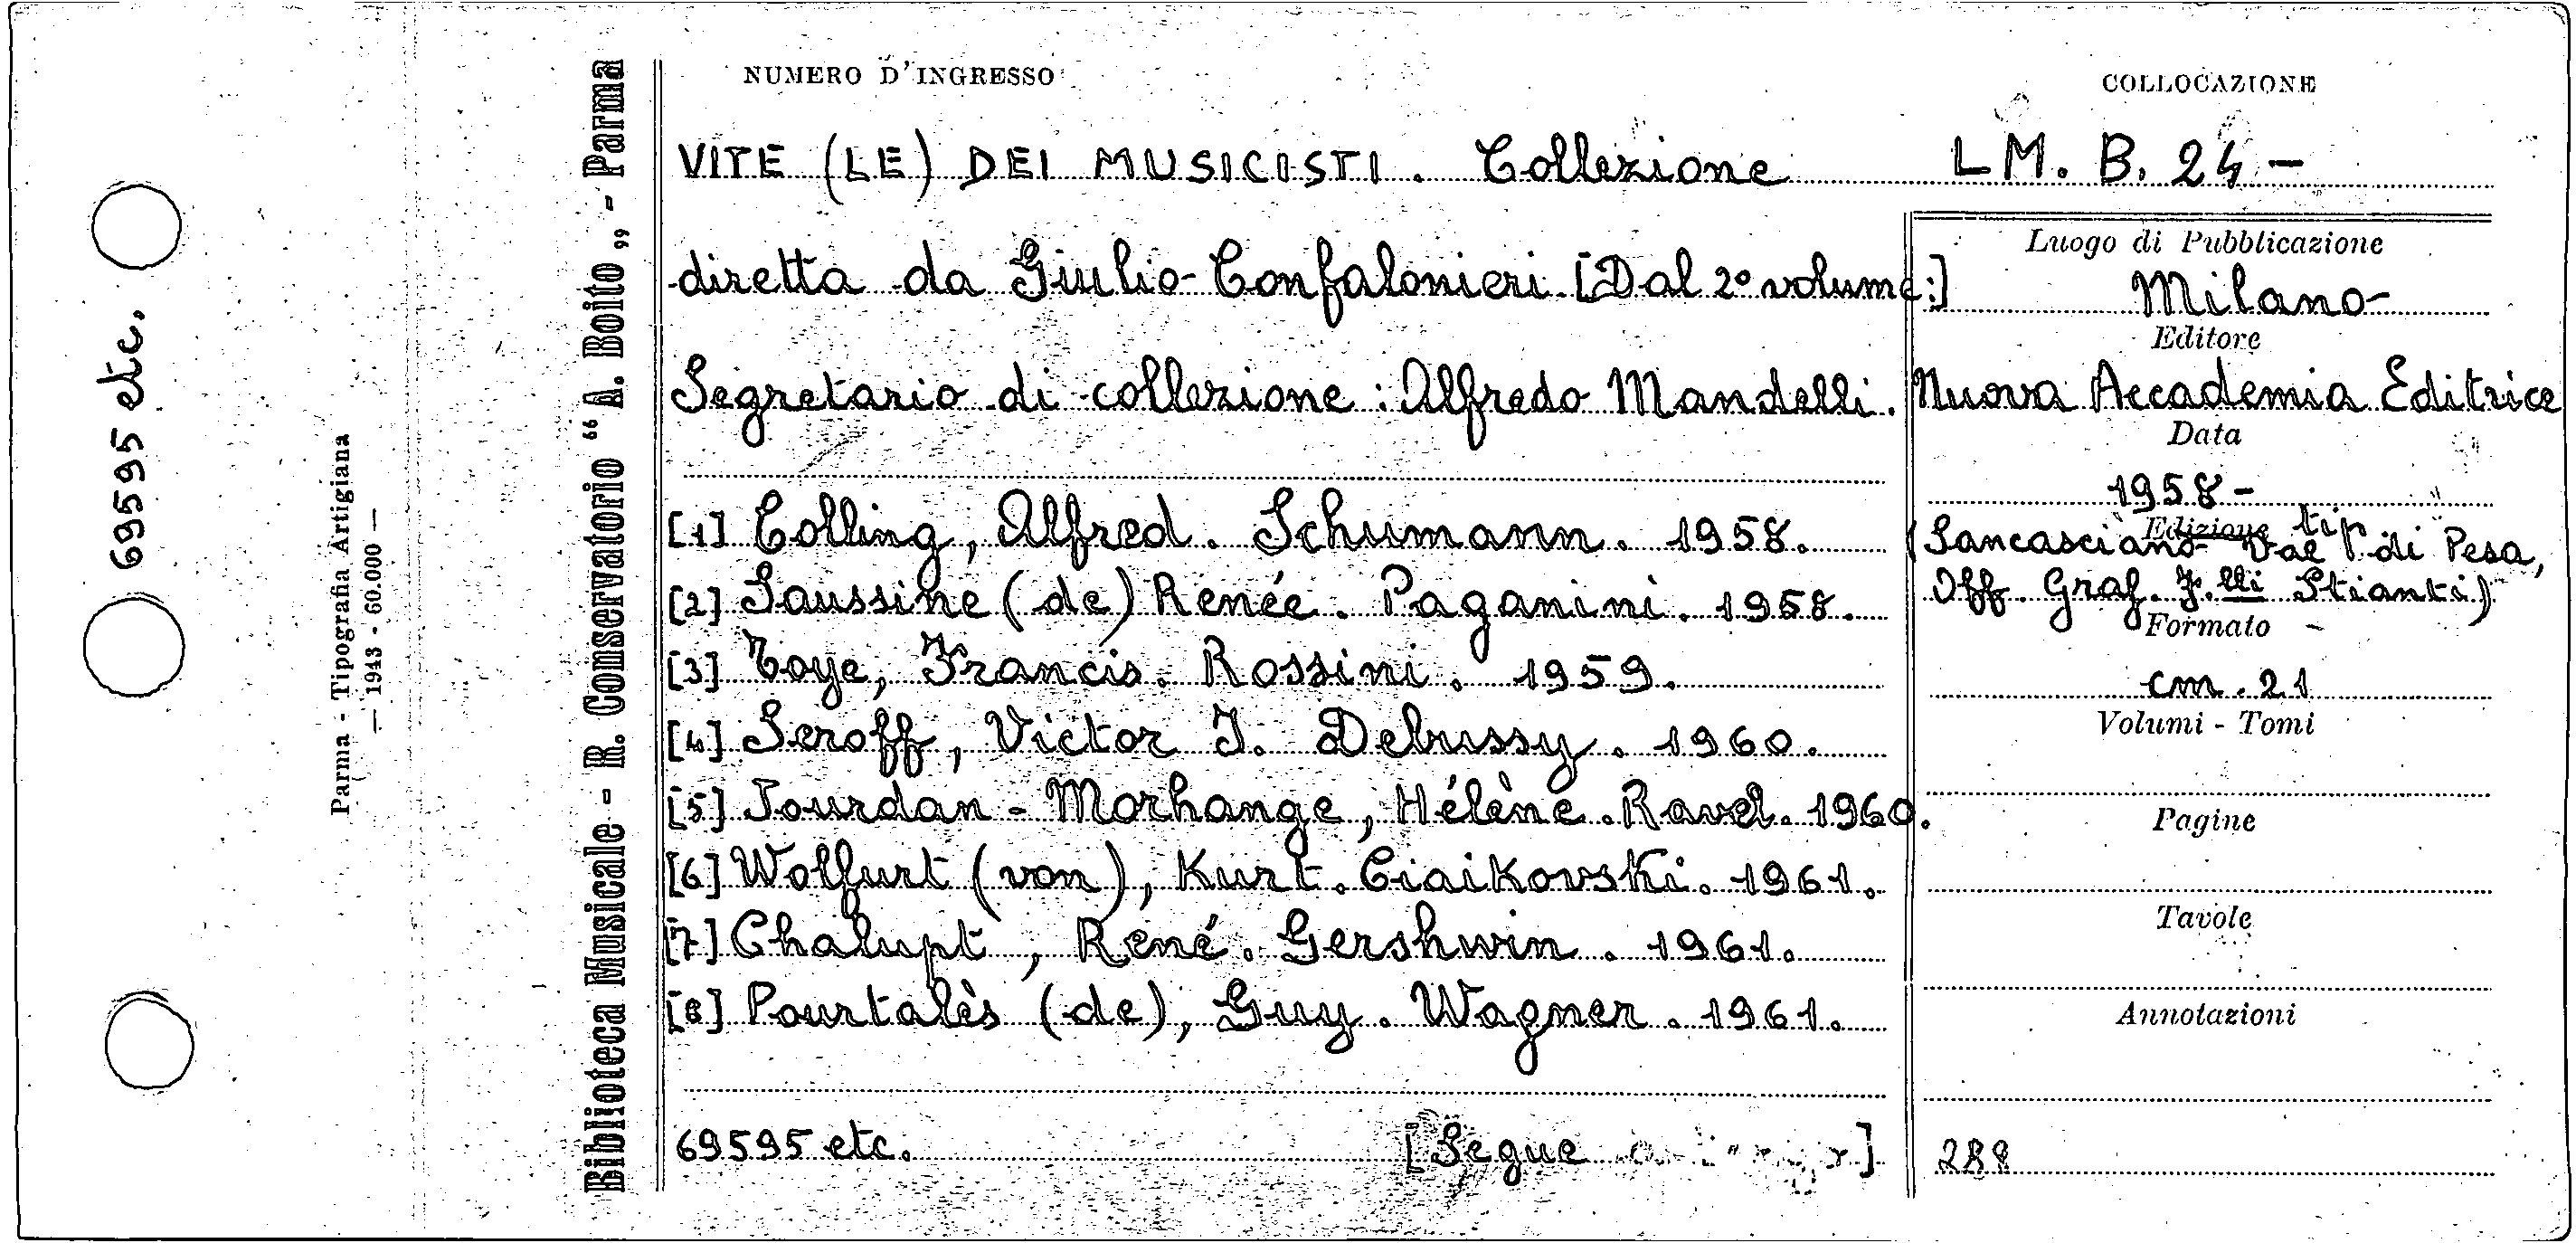 69595 etc.
Parma - Tipografia Artigiana
— 1943 - 60.000 —
Biblioteca Musicale - R. Conservatorio “ A. Boito „ - Parma
NUMERO D'INGRESSO
COLLOCAZIONE
VITE (LE) DEI MUSICISTI. Collezione
LM. B. 24 -
diretta da Giulio Confalonieri. [Dal 2° volume:]
Segretario di collezione: Alfredo Mandelli.
[1] Colling, Alfred. Schumann. 1958.
[2] Saussine (de) Renée. Paganini. 1958.
[3] Toye, Francis. Rossini. 1959.
[4] Seroff, Victor I. Debussy. 1960.
[5] Jourdan - Morhange, Hélène. Ravel. 1960.
[6] Wolfurt (von), Kurt. Ciaikovski. 1961.
[7] Chalupt, René. Gershwin. 1961.
[8] Pourtalès (de), Guy. Wagner. 1961.
69595 etc.
[Segue
Luogo di Pubblicazione
Milano
Editore
Nuova Accademia Editrice
Data
1958 -
Edizione tip.
(Sancasciano Val di Pesa,
Off. Graf. F.lli Stianti)
Formato
cm. 21
Volumi - Tomi
Pagine
Tavole
Annotazioni
288